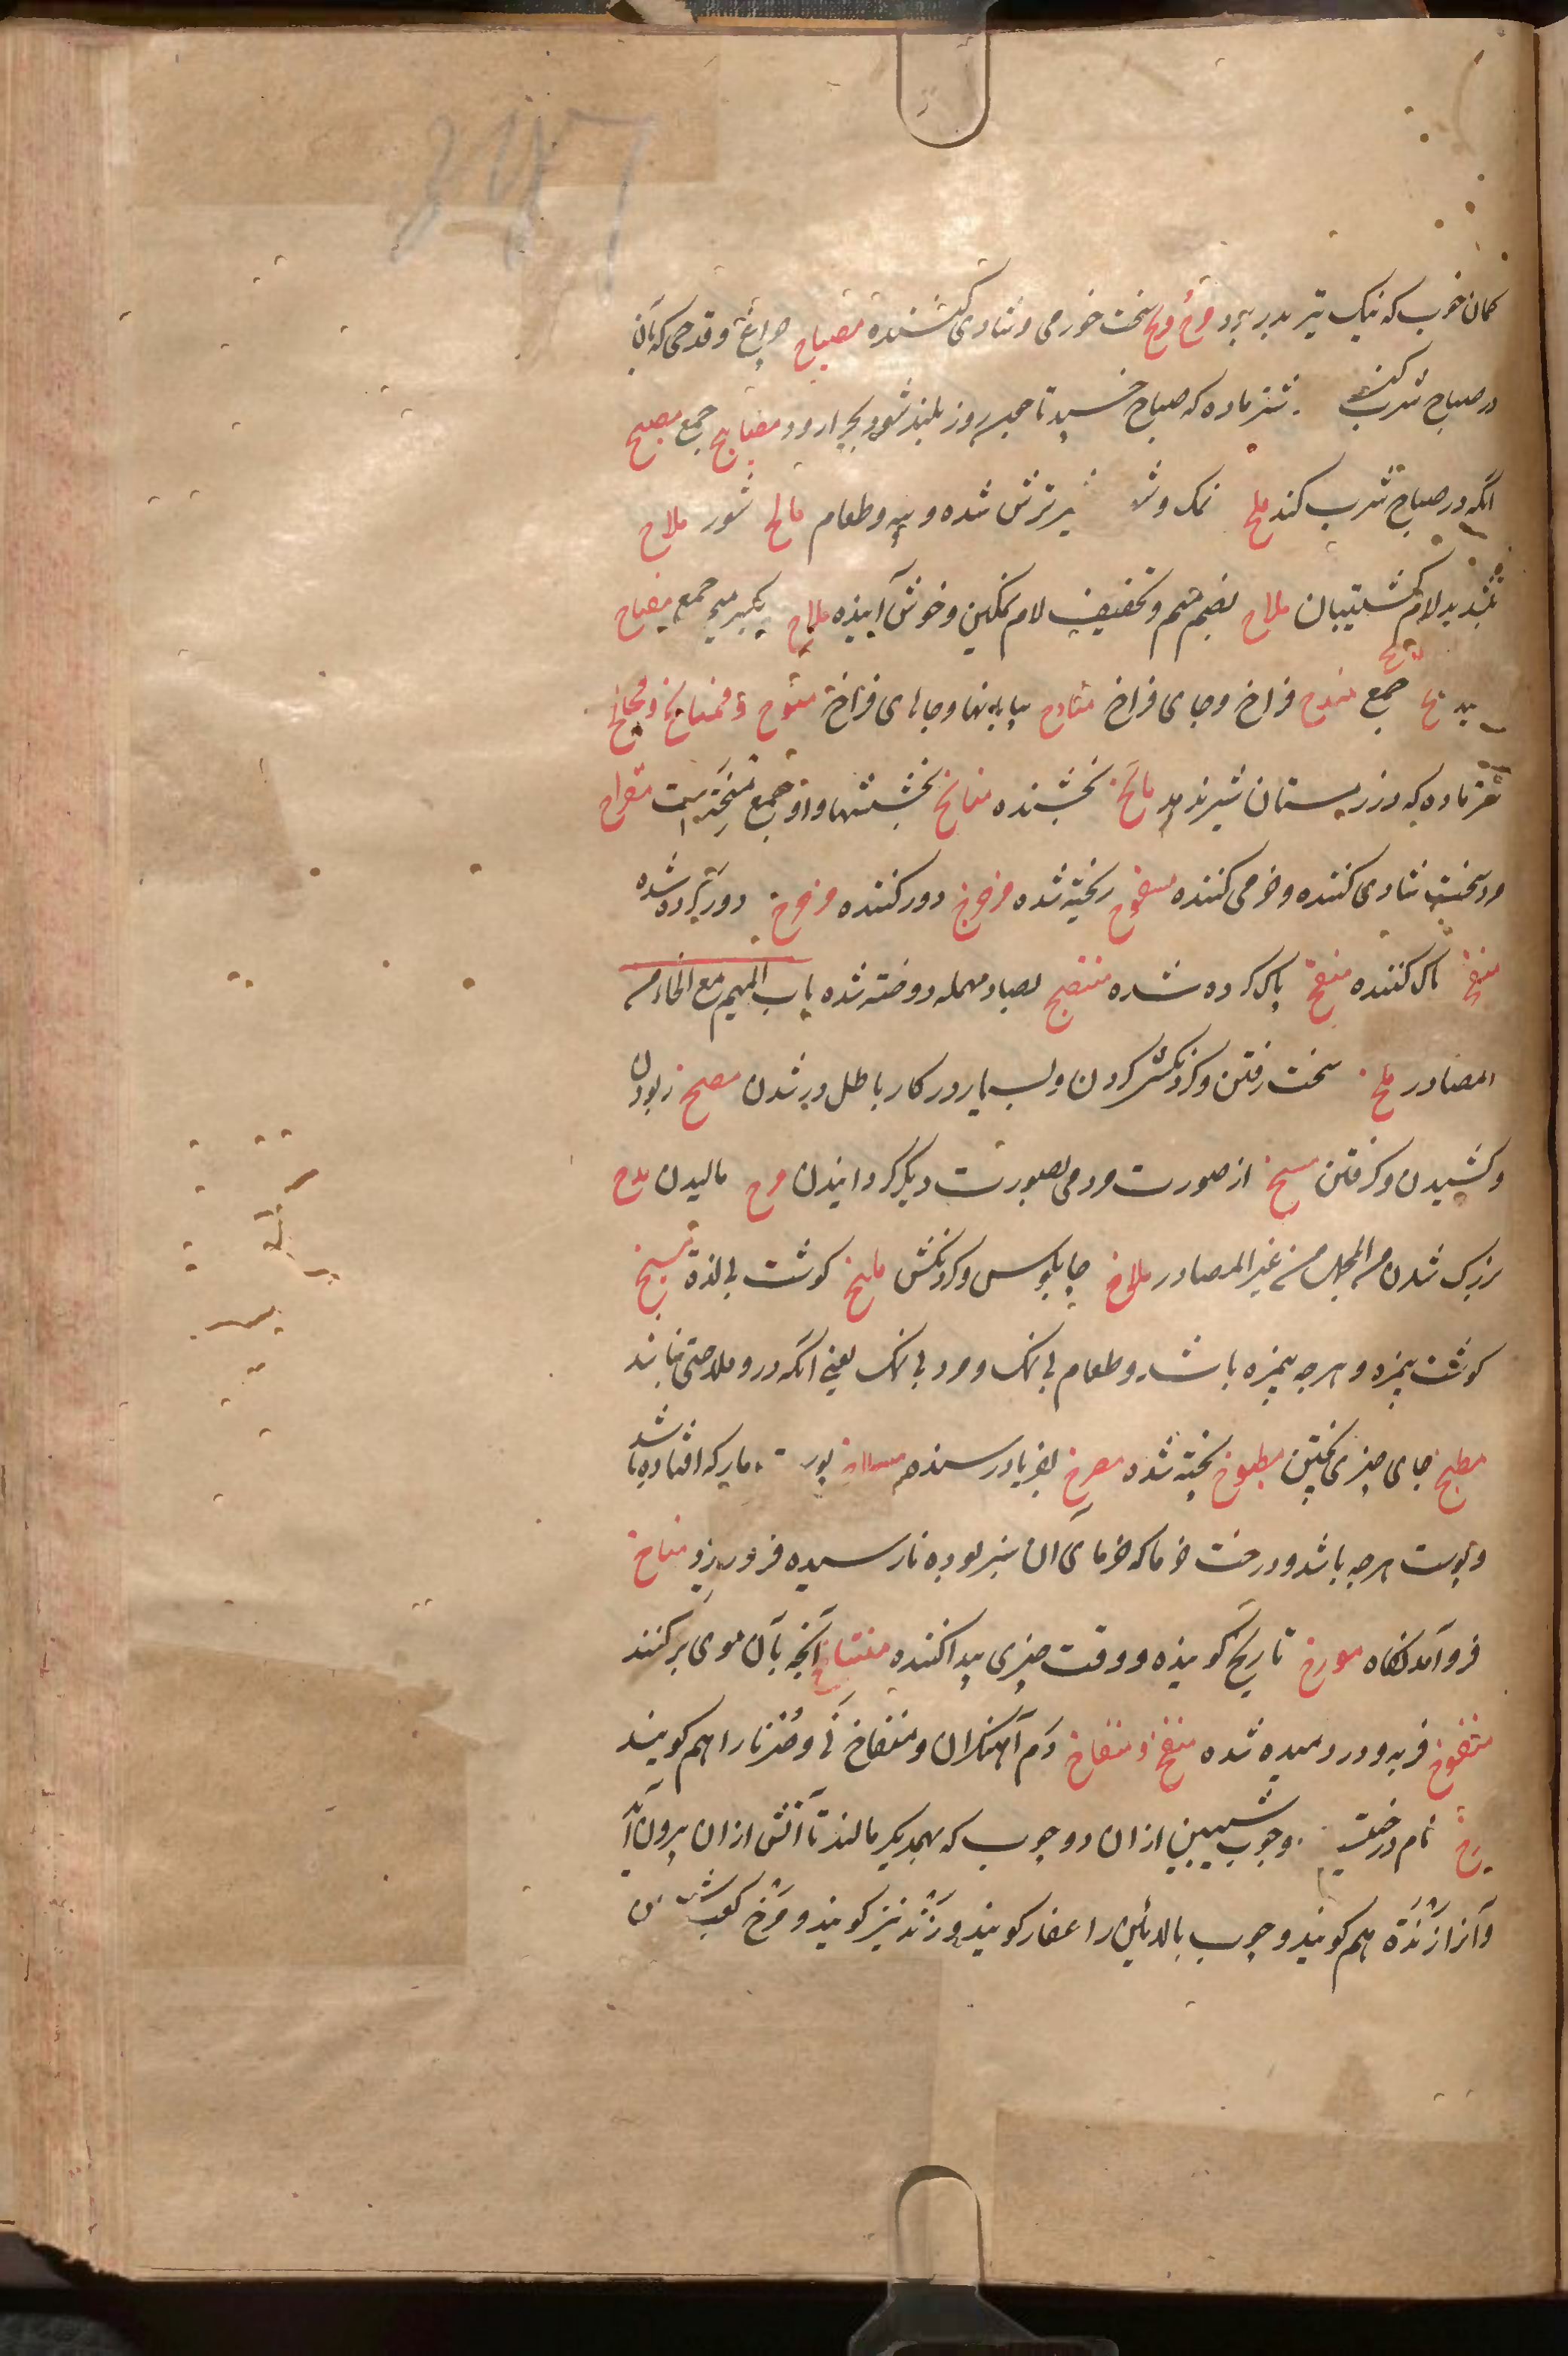 کمان خوب که نیک تیر بدر برد مرح سخت خورمی و شادی کننده مصباح چراغ و قدحی که بآن
در صباح شرب کنند شتر ماده که صباح خسپد تا روز بلند شود مصابیح جمع مصبح
آنکه در صباح شرب کند ملح نمک شیر ترش شده و پیه و طعام مالح شور ملاح
بتشدید لام کشتیبان ملاح بضم میم و تخفیف لام نمکین و خوش آینده ملاح بکسر میم جمع مفتاح
جمع مندح فراخ و جای فراخ منادح بیابانها و جاهای فراخ منوح و ممانح
شتر ماده که در زمستان شیر دهد مانح بخشنده منائح بخششها و او جمع منیحة است مفراح
مرد سخت شادی کننده و خرمی کننده مسفوح ریخته شده دور کننده دور کرده شده
منقح پاک کننده منقح پاک کرده شده منتصح بصاد مهمله دوخته شده باب المیم مع الخاء من
المصادر ملخ سخت رفتن و گردنکشی کردن و بسیار در کار باطل در شدن مصخ ربودن
و کشیدن و گرفتن مسخ از صورت مردمی بصورت دیگر گردانیدن مرخ مالیدن مدخ
بزرگ شدن من المجمل من غیر المصادر ملاخ چاپلوس و گردنکش ملیخ گوشت بی لذة مسیخ
گوشت بیمزه و هرچه بیمزه باشد و طعام بی نمک و مرد بی نمک یعنی آنکه درو ملاحتی نباشد
مطبخ جای چیزی پختن مطبوخ پخته شده مصرخ بفریاد رسنده مسلاخ مار که افتاده باشد
و پوست هرچه باشد و درخت خرما که خرمای آن سبز بوده نارسیده فرو ریزد مناخ
فرو آمدنگاه مورخ تاریخ گوینده و وقت چیزی پیدا کننده منتاخ آنچه بآن موی برکنند
منفوخ فربه و درو دمیده شده منفخ و منفاخ دم آهنگران و منفاخ نی و مزمار را هم گویند
مرخ نام درختیست و چوب شیبین ازان دو چوب که بهمدیگر مالند تا آتش ازان بیرون آید
و آنرا زندة هم گویند و چوب بالائین را عفار گویند و زند نیز گویند و مرخ